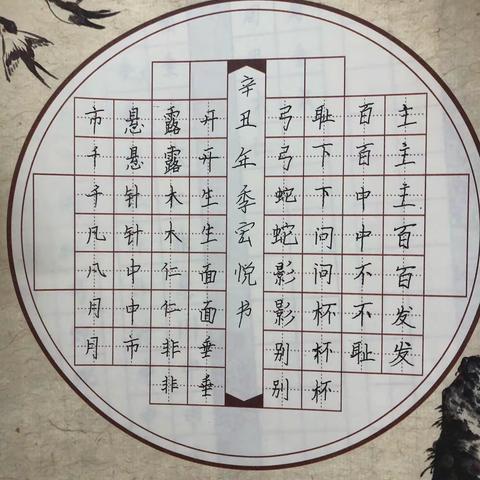 主主主百百发发
百百中中不不耻
耻下下问问杯杯杯
弓弓蛇蛇影影别别
辛丑年季宏悦书
开开生生面面垂垂
露露木木仁仁非非
悬悬针针中中市
市千千凡凡月月